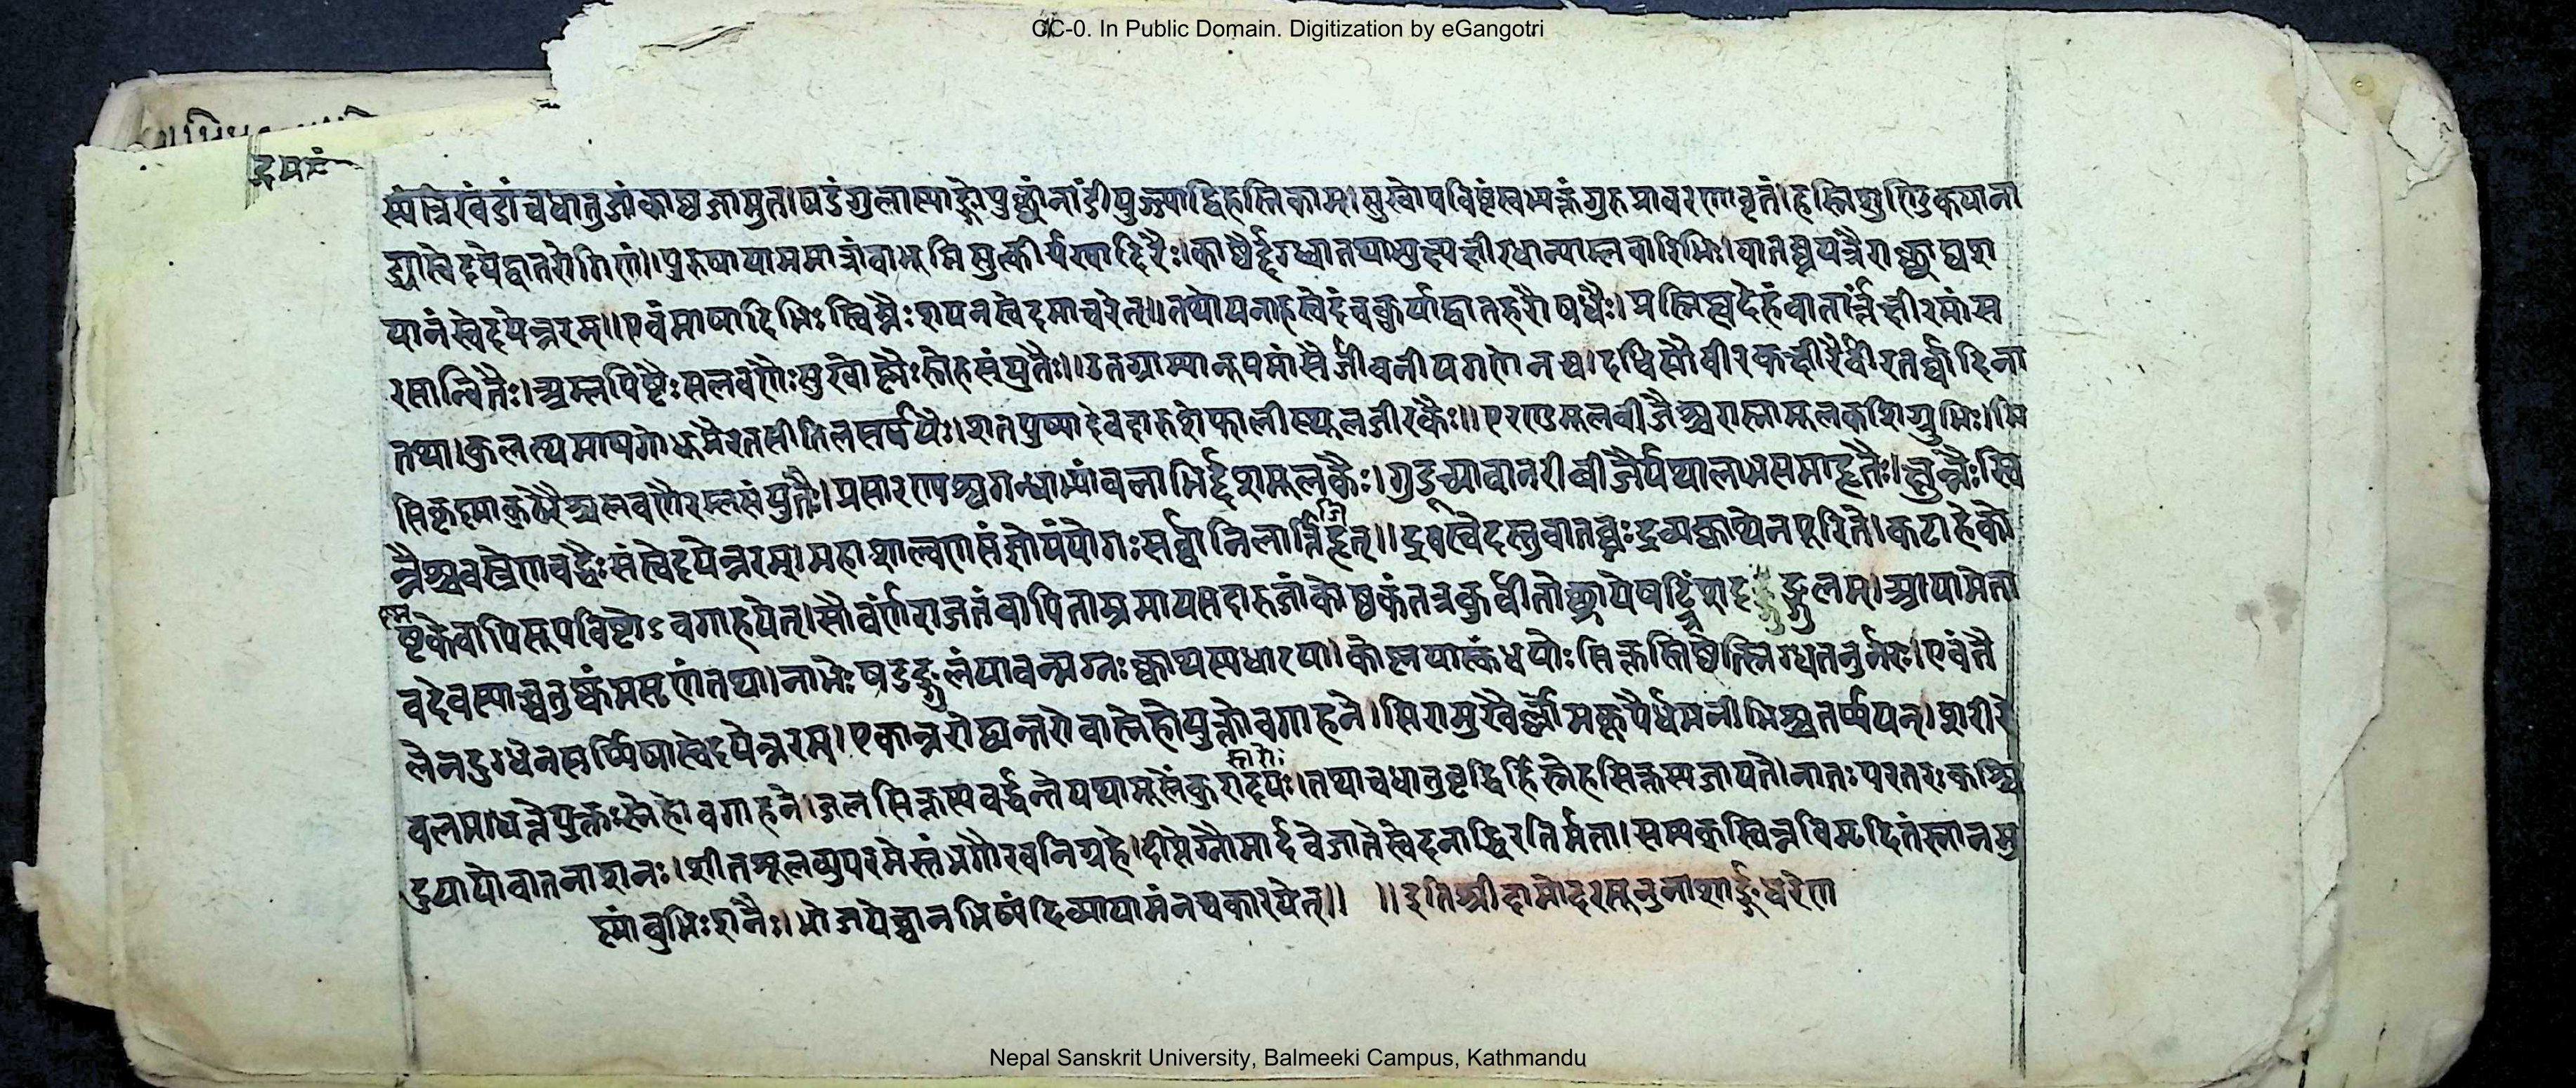 CC-0. In Public Domain. Digitization by eGangotri
हृदयं
स्यंत्रिखंडां च धातुजां काष्ठजामुत। षडंगुलास्यां पुच्छां नाडीं युञ्ज्याद्द्विहस्तिकाम्। सुखोपविष्टं स्वभ्यक्तं गुरुप्रावरणावृतं। हस्तिशुण्डिकया ना
ड्यास्वेदयेद्वातरोगिणं॥ पुरुषायाममात्रां वा भूमिमुत्कीर्य खादिरैः। काष्ठैर्द्दग्ध्वा तथाभ्युक्ष्य क्षीरधान्याम्लवारिभिः। वातघ्नपत्रैराच्छाद्य श
यानं स्वेदयेन्नरम्॥ एवं माषादिभिः स्विन्नैः शयनस्वेदमाचरेत्॥ तथोपनाहस्वेदं च कुर्याद्वातहरौषधैः। प्रलिप्य देहं वातार्त्तं क्षीरमांस
रसान्वितैः। अम्लपिष्टैः सलवणैः सुखोष्णैः स्नेहसंयुतैः॥ उतग्राम्यानूपमांसैर्जीवनीयगणेन च। दधिसौवीरकक्षीरैर्वीरतर्वादिना
तथा। कुलत्थमाषगोधूमैरतसीतिलसर्षपैः। शतपुष्पादेवदारुशेफालीस्थूलजीरकैः॥ एरण्डमूलबीजैश्च रास्नामूलकशिग्रुभिः। मि
सिकृष्णाकुठेरैश्च लवणैरम्लसंयुतैः। प्रसारण्यश्वगन्धाभ्यां बलाभिर्द्दशमूलकैः। गुडूच्यावानरीबीजैर्यथालाभसमाहृतैः। क्षुण्णैः स्वि
न्नैश्च वस्त्रेण बद्धैः संस्वेदयेन्नरम्। महाशाल्वणसंज्ञोयं योगः सर्वानिलार्त्तिहृत्॥ द्रवस्वेदस्तु वातघ्नः द्रव्यक्वाथेन पूरिते। कटाहे को
ष्ठके वापि सूपविष्टोऽवगाहयेत्। सौवर्णं राजतं वापि ताम्रमायसदारुजां कोष्ठकं तत्र कुर्वीतोच्छ्राये षट्त्रिंशदङ्गुलम्। आयामे ता
वदेव स्याच्चतुष्कं मसृणं तथा। नाभेः षडङ्गुलं यावन्मग्नः क्वाथस्य धारया। कोष्णया स्कंधयोः सिक्तस्तिष्ठेत्स्निग्धतनुर्नरः। एवं तै
लेन दुग्धेन सर्पिषा स्वेदयेन्नरम्। एकान्तरो द्व्यन्तरो वा स्नेहो युक्तोवगाहने। सिरामुखैर्लोमकूपैर्धमनीभिश्च तर्पयन्। शरीरे
बलमाधत्ते युक्तः स्नेहोवगाहने। जलसिक्तस्य वर्द्धन्ते यथा मूलेंकुरादयः। तथा च धातुवृद्धिर्हि स्नेहसिक्तस्य जायते। नातः परतरः कश्चि
दुपायो वातनाशनः। शीतशूलव्युपरमे स्तंभगौरवनिग्रहे। दीप्तेग्नौ मार्द्दवे जाते स्वेदनाद्विरतिर्मता। सम्यक् स्विन्नं विमृदितं स्नानमु
ष्णांबुभिः शनैः। भोजयेच्चानभिष्यंदि व्यायामं न च कारयेत्॥ ॥ इति श्रीदामोदरसूनुना शार्ङ्गधरेण
Nepal Sanskrit University, Balmeeki Campus, Kathmandu